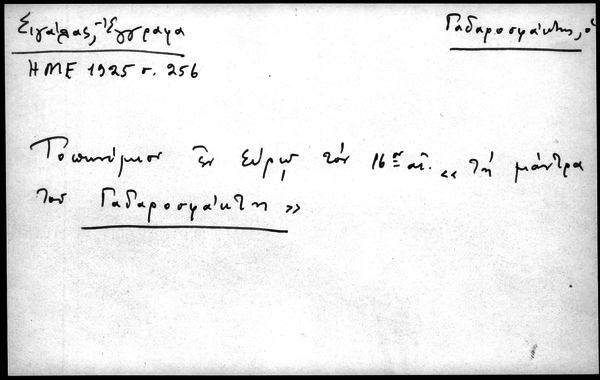 Σιγάλας, Ἔγγραφα
Γαδαροσφάκτης, ὁ
ΗΜΕ 1925 σ. 256
Τοπωνύμιον ἐν Σύρῳ τὸν 16ον αἰ. « τὴ μάντρα
τοῦ Γαδαροσφάκτη »